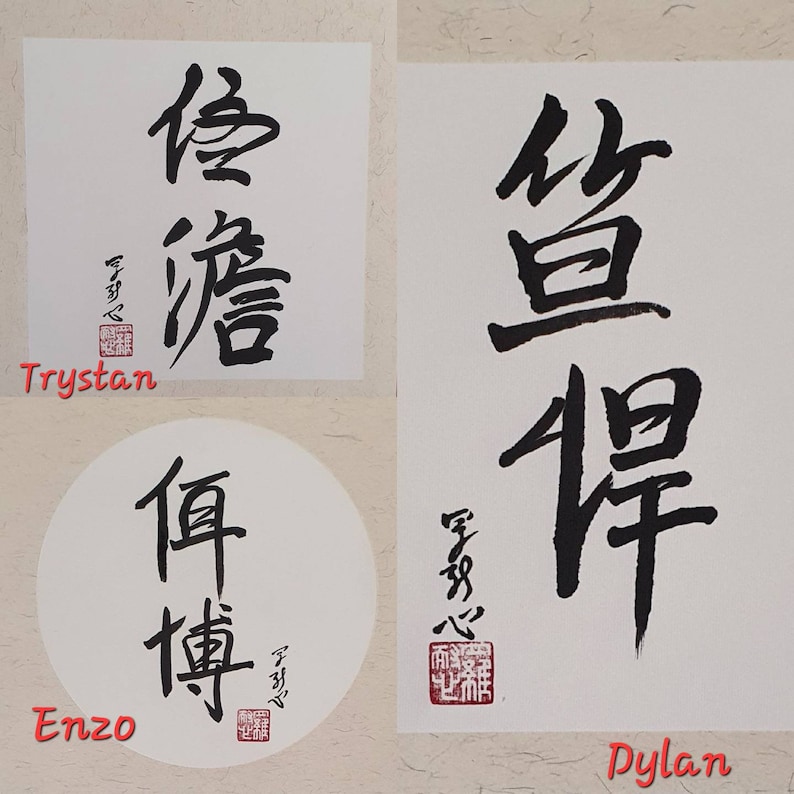 佟
澹
Trystan
佴
博
Enzo
笪
悍
Dylan